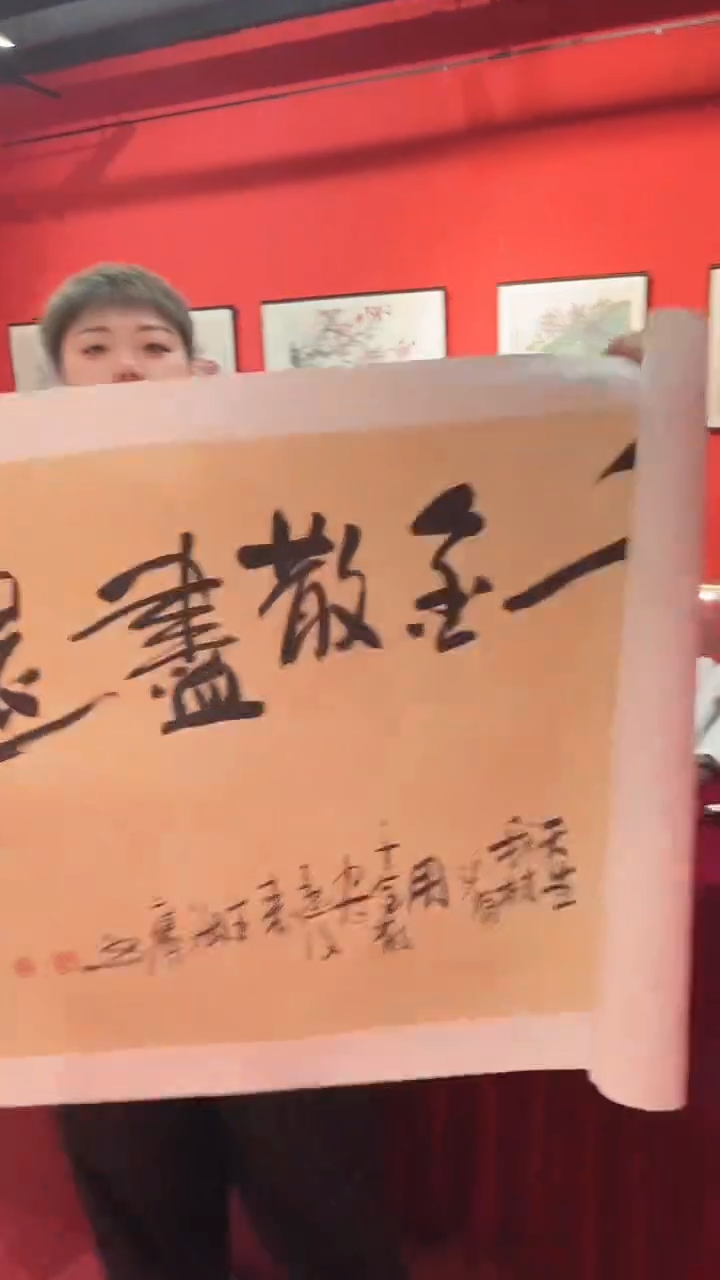 千金散盡還
天生我材必有用千金散尽還復來